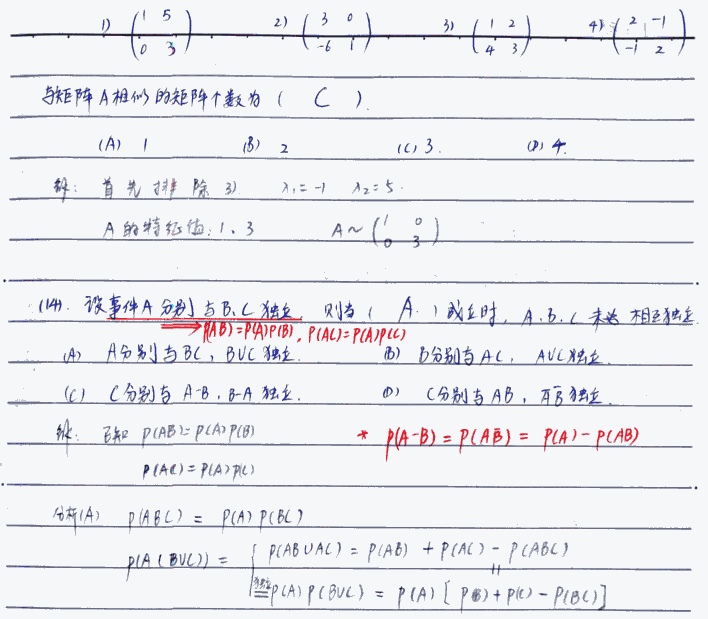 1) (1 5 0 3) 2) (3 0 -6 1) 3) (1 2 4 3) 4) (2 -1 -1 2)
与矩阵A相似的矩阵个数为( C ).
(A) 1 (B) 2 (C) 3. (D) 4.
解: 首先排除3) λ₁=-1 λ₂=5.
A的特征值: 1、3 A~(1 0 0 3)
(14). 设事件A分别与B、C独立, 则当( A. )成立时, A.B.C 相互独立
⇒P(AB)=P(A)P(B), P(AC)=P(A)P(C)
(A) A分别与BC, B∪C独立. (B) B分别与AC, A∪C独立.
(C) C分别与A-B, B-A独立. (D) C分别与AB, A̅B̅独立.
解: 已知 P(AB)=P(A)P(B) * P(A-B) = P(AB̅) = P(A) - P(AB)
P(AC)=P(A)P(C)
分析(A) P(ABC) = P(A)P(BC)
P(A(B∪C)) = { P(AB∪AC) = P(AB) + P(AC) - P(ABC)
独立= P(A)P(B∪C) = P(A)[P(B)+P(C)-P(BC)]